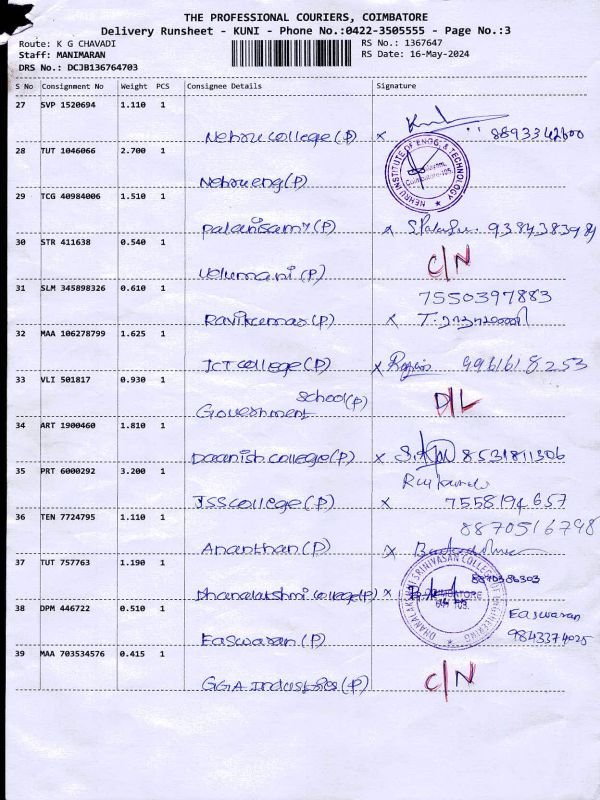 THE PROFESSIONAL COURIERS, COIMBATORE
Delivery Runsheet - KUNI - Phone No.:0422-3505555 - Page No.:3
Route: K G CHAVADI RS No.: 1367647
Staff: MANIMARAN RS Date: 16-May-2024
DRS No.: DCJB136764703
S No Consignment No Weight PCS Consignee Details Signature
27 SVP 1520694 1.110 1
Nehru college (P) x 8893342600
28 TUT 1046066 2.700 1
NEHRU INSTITUTE OF ENGG. & TECHNOLOGY
Nehru eng (P)
29 TCG 40984006 1.510 1
Palanisamy (P) x 9384383984
30 STR 411638 0.540 1
Velumani (P) C/N
31 SLM 345898326 0.610 1 7550397883
Ravikumar (P) x
32 MAA 106278799 1.625 1
JCT college (P) x 9961618253
33 VLI 501817 0.930 1
Government school (P) D/L
34 ART 1900460 1.810 1
Daanish college (P) x 8531811306
35 PRT 6000292 3.200 1
JSS college (P) x 7558194657
36 TEN 7724795 1.110 1 8870516798
Ananthan (P) x
37 TUT 757763 1.190 1 8870386303
Dhanalakshmi college (P) x
DHANALAKSHMI SRINIVASAN COLLEGE OF ENGINEERING
COIMBATORE
38 DPM 446722 0.510 1 Easwaran
Easwaran (P) 9843374025
39 MAA 703534576 0.415 1
GGA Industries (P) C/N